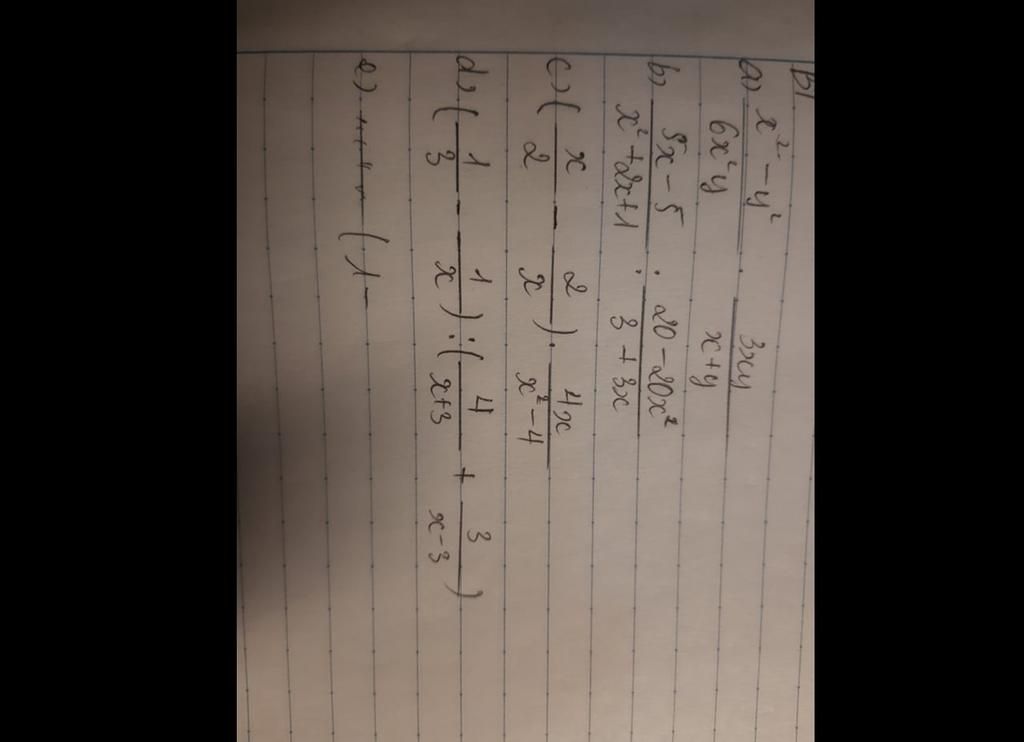 B1
a) \frac{x^2 - y^2}{6x^2y} \cdot \frac{3xy}{x+y}
b) \frac{5x - 5}{x^2 + 2x + 1} : \frac{20 - 20x^2}{3 + 3x}
c) ( \frac{x}{2} - \frac{2}{x} ) \cdot \frac{4x}{x^2 - 4}
d) ( \frac{1}{3} - \frac{1}{x} ) : ( \frac{4}{x+3} + \frac{3}{x-3} )
e) ( 1 -